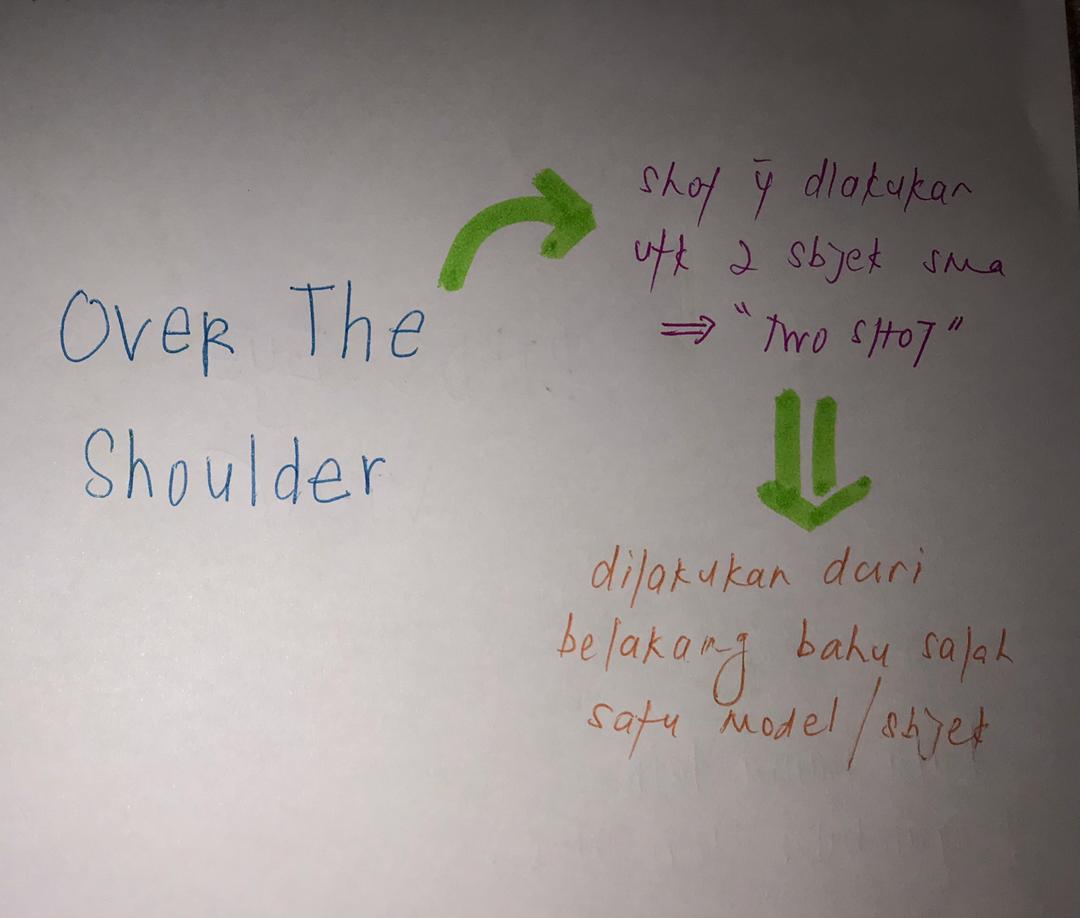 Over The
Shoulder
shot ȳ dlakukan
utk 2 sbjek sma
⇒ "TWO SHOT"
dilakukan dari
belakang bahu salah
satu model/sbjek